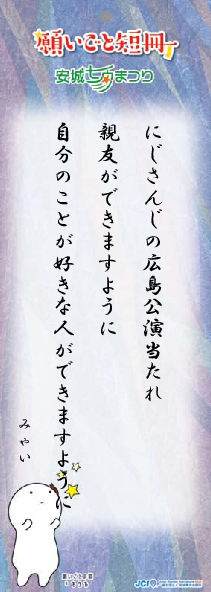 願いごと短冊
安城七夕まつり
にじさんじの広島公演当たれ
親友ができますように
自分のことが好きな人ができますように
みやい
願いごと短冊
JCI